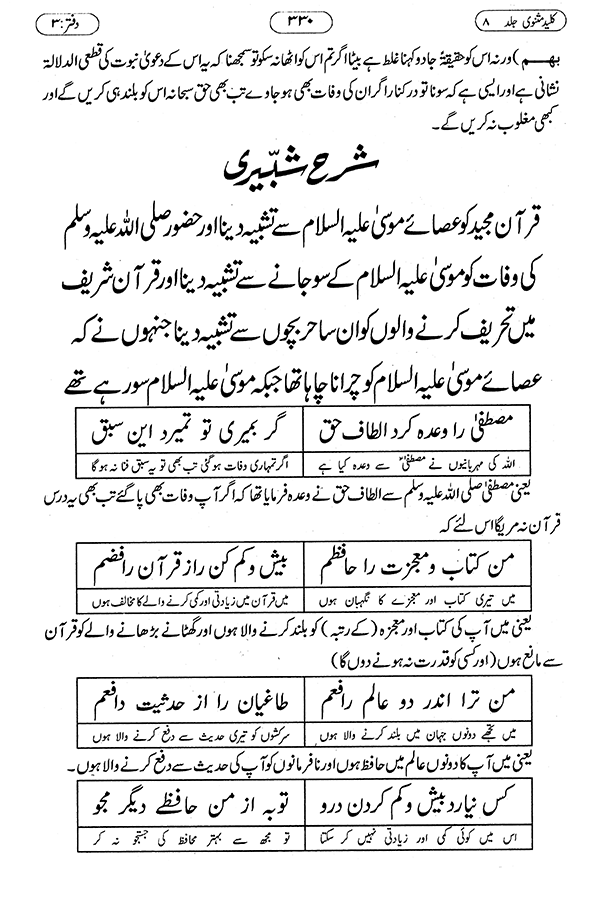 کلید مثنوی جلد ۸ ۳۳۰ دفتر: ۳
بھم) ورنہ اس کو حقیقۃً جادو کہنا غلط ہے بیٹا اگر تم اس کو اٹھا نہ سکو تو سمجھنا کہ یہ اس کے دعویٰ نبوت کی قطعی الدلالۃ
نشانی ہے اور ایسی ہے کہ سونا تو درکنار اگر ان کی وفات بھی ہو جاوے تب بھی حق سبحانہ اس کو بلند ہی کریں گے اور
کبھی مغلوب نہ کریں گے۔
شرح شبیری
قرآن مجید کو عصائے موسیٰ علیہ السلام سے تشبیہ دینا اور حضور صلی اللہ علیہ وسلم
کی وفات کو موسیٰ علیہ السلام کے سو جانے سے تشبیہ دینا اور قرآن شریف
میں تحریف کرنے والوں کو ان ساحر بچوں سے تشبیہ دینا جنہوں نے کہ
عصائے موسیٰ علیہ السلام کو چرانا چاہا تھا جبکہ موسیٰ علیہ السلام سو رہے تھے
مصطفیٰ را وعدہ کرد الطاف حق گر بمیری تو نمیرد این سبق
اللہ کی مہربانیوں نے مصطفیٰؐ سے وعدہ کیا ہے اگر تمہاری وفات ہو گئی تب بھی تو یہ سبق فنا نہ ہو گا
یعنی مصطفیٰ صلی اللہ علیہ وسلم سے الطاف حق نے وعدہ فرمایا تھا کہ اگر آپ وفات بھی پا گئے تب بھی یہ درس
قرآن نہ مریگا اس لئے کہ
من کتاب و معجزت را حافظم بیش و کم کن راز قرآن رافضم
میں تیری کتاب اور معجزے کا نگہبان ہوں میں قرآن میں زیادتی اور کمی کرنے والے کا مخالف ہوں
یعنی میں آپ کی کتاب اور معجزہ (کے رتبہ) کو بلند کرنے والا ہوں اور گھٹانے بڑھانے والے کو قرآن
سے مانع ہوں (اور کسی کو قدرت نہ ہونے دوں گا)
من ترا اندر دو عالم رافعم طاغیان را از حدثیت دافعم
میں تجھے دونوں جہان میں بلند کرنے والا ہوں سرکشوں کو تیری حدیث سے دفع کرنے والا ہوں
یعنی میں آپ کا دونوں عالم میں حافظ ہوں اور نافرمانوں کو آپ کی حدیث سے دفع کرنے والا ہوں۔
کس نیارد بیش و کم کردن درو توبہ از من حافظے دیگر مجو
اس میں کوئی کمی اور زیادتی نہیں کر سکتا تو مجھ سے بہتر محافظ کی جستجو نہ کر